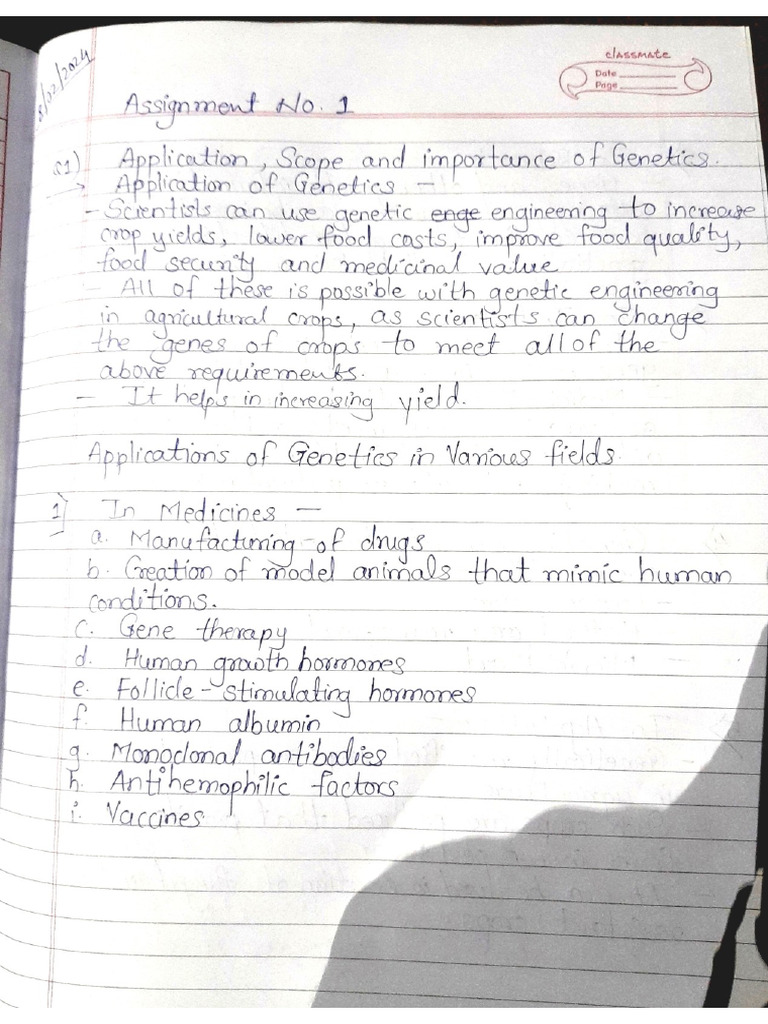 8/02/2024
classmate
Date
Page
Assignment No. 1
Q1) Application, Scope and importance of Genetics.
→ Application of Genetics -
- Scientists can use genetic enge engineering to increase
crop yields, lower food costs, improve food quality,
food security and medicinal value
- All of these is possible with genetic engineering
in agricultural crops, as scientists can change
the genes of crops to meet all of the
above requirements.
- It helps in increasing yield.
Applications of Genetics in Various fields
1) In Medicines -
a. Manufacturing of drugs
b. Creation of model animals that mimic human
conditions.
c. Gene therapy
d. Human growth hormones
e. Follicle-stimulating hormones
f. Human albumin
g. Monoclonal antibodies
h. Antihemophilic factors
i. Vaccines